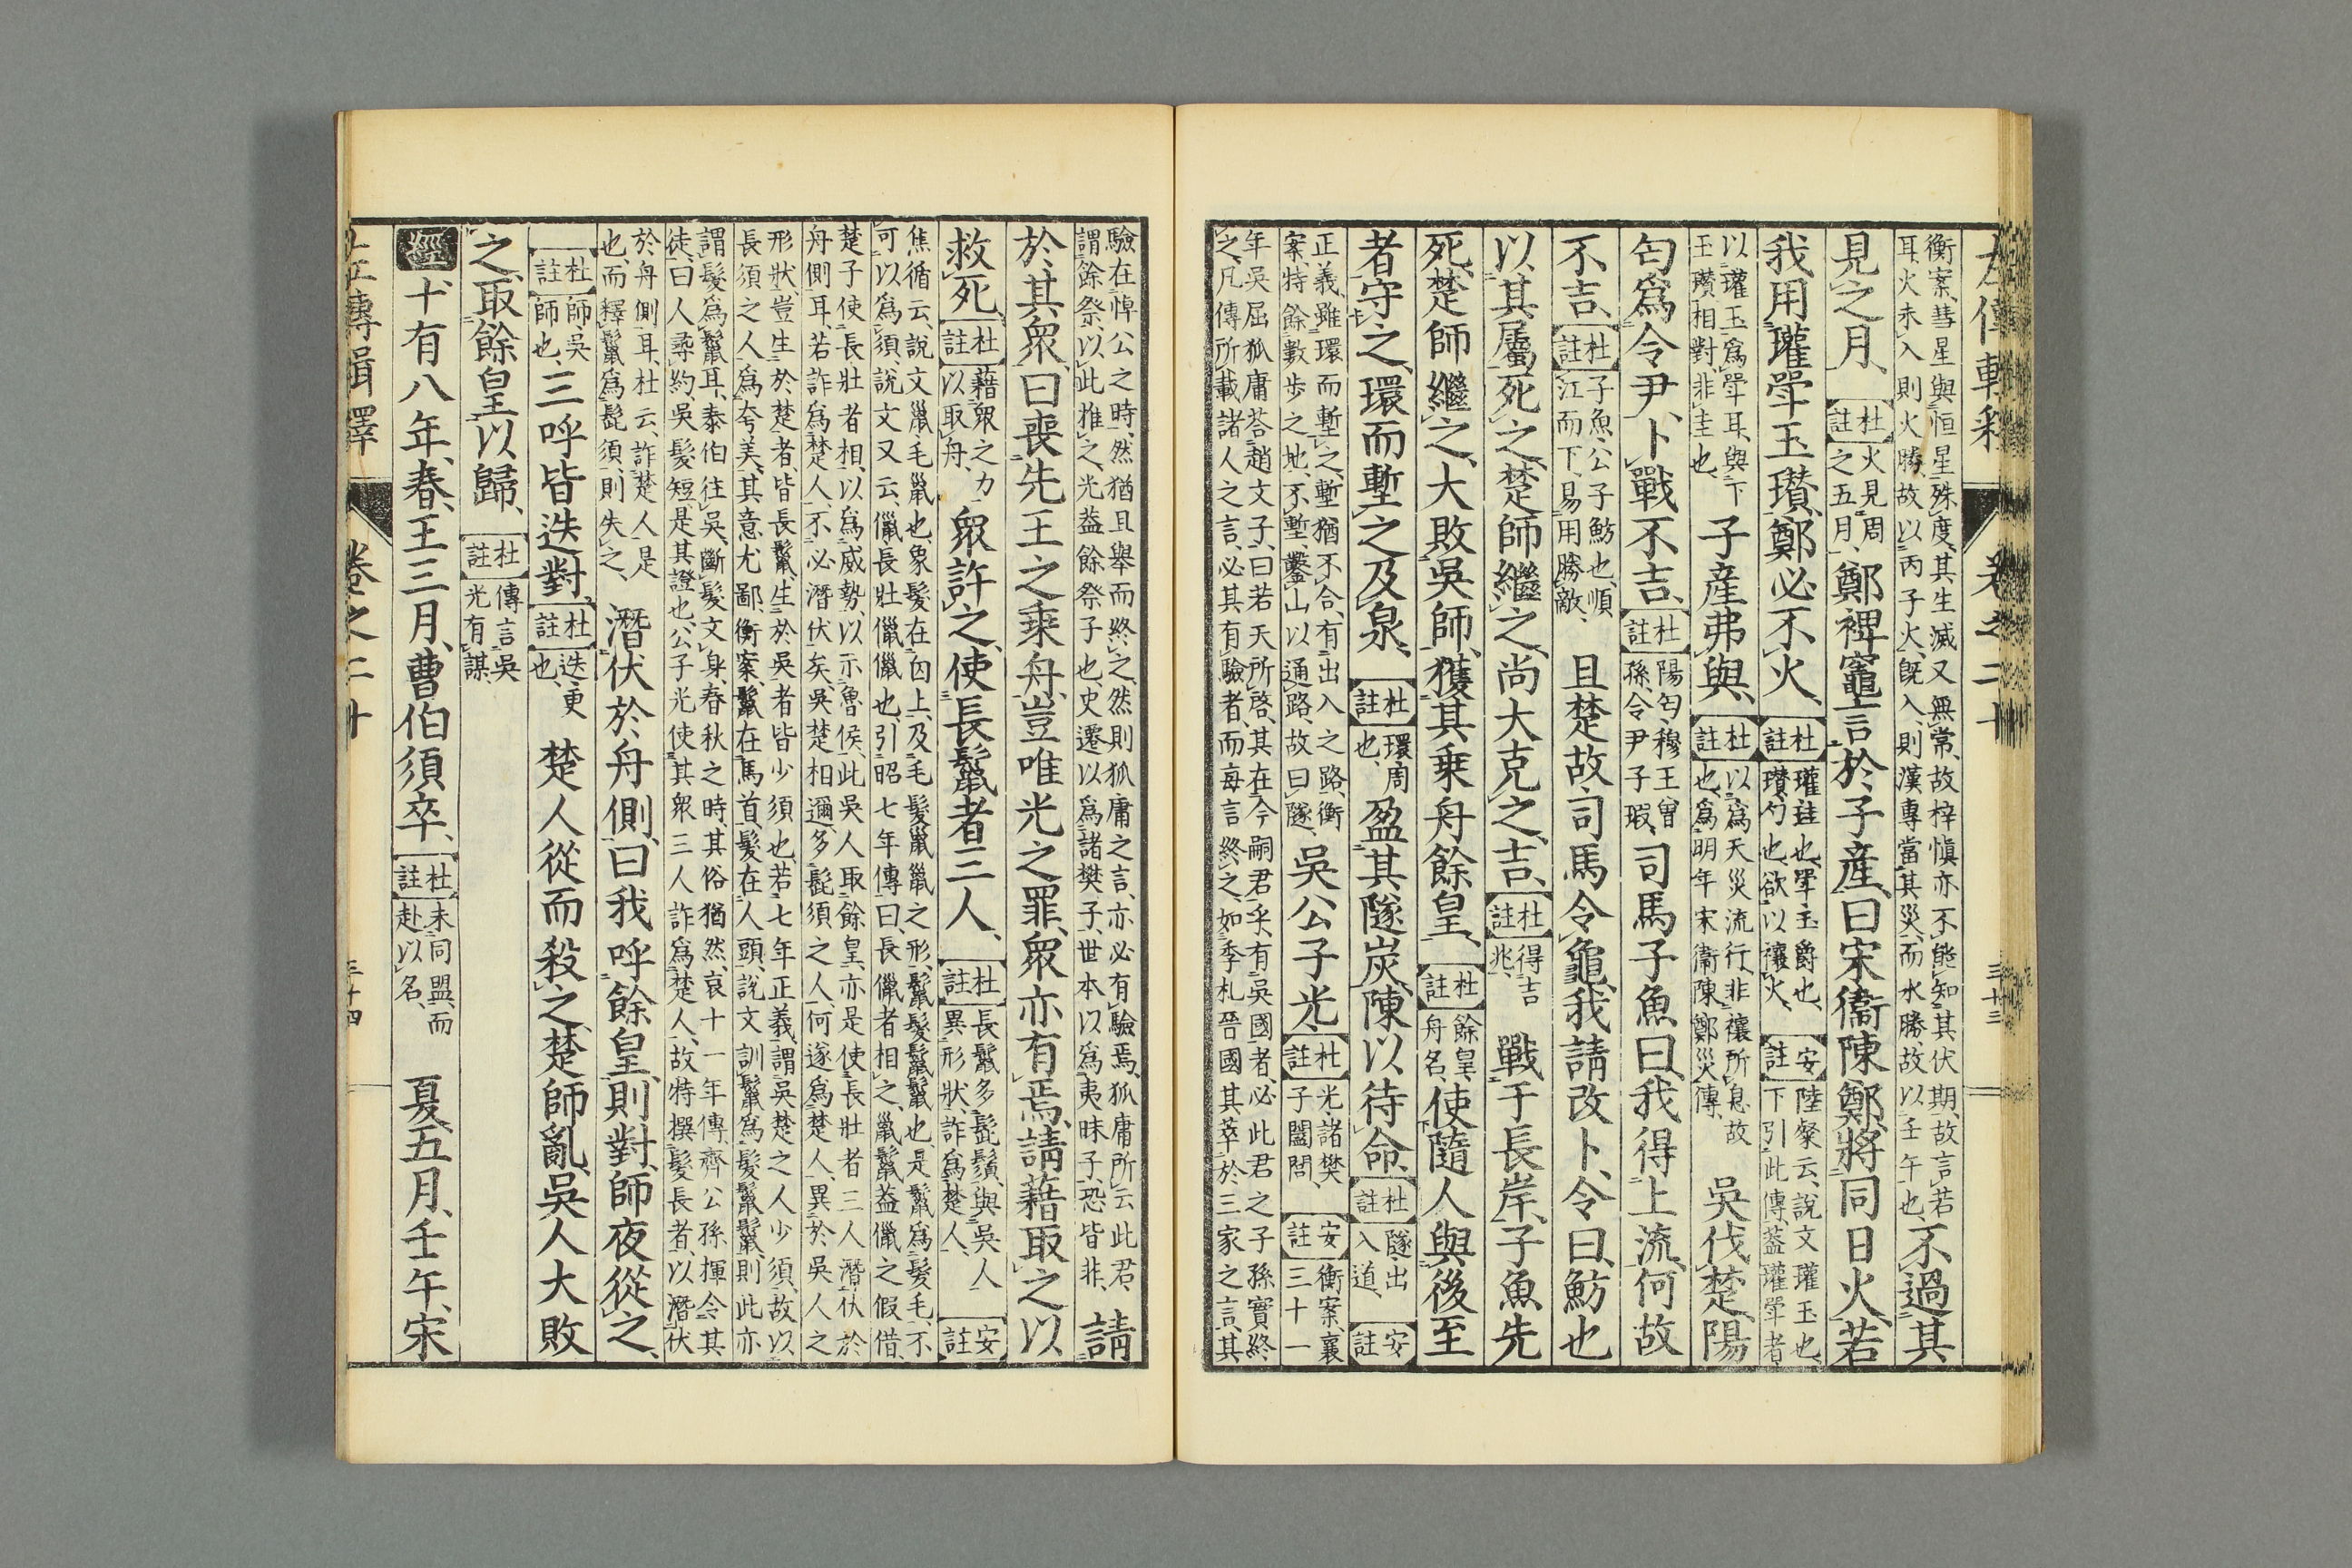 左傳輯釋 卷之二十 三十三
衡案、彗星與恒星殊度、其生滅又無常、故梓愼亦不能知其伏期、故言若
耳、火未入則火勝、故以丙子火、旣入、則漢專當其災、而水勝、故以壬午也、不過其
見之月、杜註火見周之五月、鄭裨竈言於子産、曰宋衞陳鄭將同日火、若
我用瓘斝玉瓚、鄭必不火、杜註瓘珪也、斝玉爵也、瓚勺也、欲以禳火、安註陸粲云、說文瓘玉也、下引此傳、蓋瓘斝者
以瓘玉爲斝耳、與下玉瓚相對、非圭也、子産弗與、杜註以爲天災流行、非禳所息故也、爲明年宋衞陳鄭災傳、吳伐楚、陽
匄爲令尹、卜戰不吉、杜註陽匄、穆王曾孫、令尹子瑕、司馬子魚曰、我得上流、何故
不吉、杜註子魚、公子魴也、順江而下、易用勝敵、且楚故、司馬令龜、我請改卜、令曰、魴也
以其屬死之、楚師繼之、尚大克之、吉、杜註得吉兆、戰于長岸、子魚先
死、楚師繼之、大敗吳師、獲其乗舟餘皇、杜註餘皇、舟名、使隨人與後至
者守之、環而塹之、及泉、杜註環周也、盈其隧炭、陳以待命、杜註隧出入道、安註
正義、雖環而塹之、塹猶不合、有出入之路、衡案、特餘數步之地、不塹、鑿山以通路、故曰隧、吳公子光、杜註光、諸樊子闔閭、安註衡案、襄三十一
年吳屈狐庸荅趙文子曰、若天所啓、其在今嗣君乎、有吳國者、必此君之子孫實終
之、凡傳所載諸人之言、必其有驗者、而每言終之、如季札晉國其萃於三家之言、其
驗在悼公之時、然猶且舉而終之、然則狐庸之言、亦必有驗焉、狐庸所云此君、
謂餘祭、以此推之、光蓋餘祭子也、史遷以爲諸樊子、世本以爲夷昧子、恐皆非、請
於其衆、曰喪先王之乗舟、豈唯光之罪、衆亦有焉、請藉取之以
救死、杜註藉衆之力以取舟、衆許之、使長鬣者三人、杜註長鬣多髭鬚、與吳人異形狀、詐爲楚人、安註
焦循云、說文巤毛巤也、象髮在囟上、及毛髮巤巤之形、鬣髮鬣鬣也、是鬣爲髮毛、不
可以爲須、說文又云、儠長壯儠儠也、引昭七年傳曰、長儠者相之、巤鬣蓋儠之假借、
楚子使長壯者相、以爲威勢、以示魯侯、此吳人取餘皇、亦是使長壯者三人潛伏於
舟側耳、若詐爲楚人、不必潛伏矣、吳楚相邇、多髭須之人、何遂爲楚人、異於吳人之
形狀、豈生於楚者、皆長鬣、生於吳者皆少須也、若七年正義、謂吳楚之人少須、故以
長須之人、爲夸美、其意尤鄙、衡案、鬣在馬首、髮在人頭、說文訓鬣爲髮鬣鬣、則此亦
謂髮爲鬣耳、泰伯往吳、斷髮文身、春秋之時、其俗猶然、哀十一年傳、齊公孫揮令其
徒曰、人尋約、吳髮短、是其證也、公子光使其衆三人詐爲楚人、故特撰髮長者、以潛伏
於舟側耳、杜云、詐楚人是也、而釋鬣爲髭須、則失之、潛伏於舟側、曰我呼餘皇、則對、師夜從之、
杜註師、吳師也、三呼皆迭對、杜註迭、更也、楚人從而殺之、楚師亂、吳人大敗
之、取餘皇以歸、杜註傳言吳光有謀、
經十有八年、春、王三月、曹伯須卒、杜註未同盟、而赴以名、夏五月、壬午、宋
左傳輯釋 卷之二十 三十四